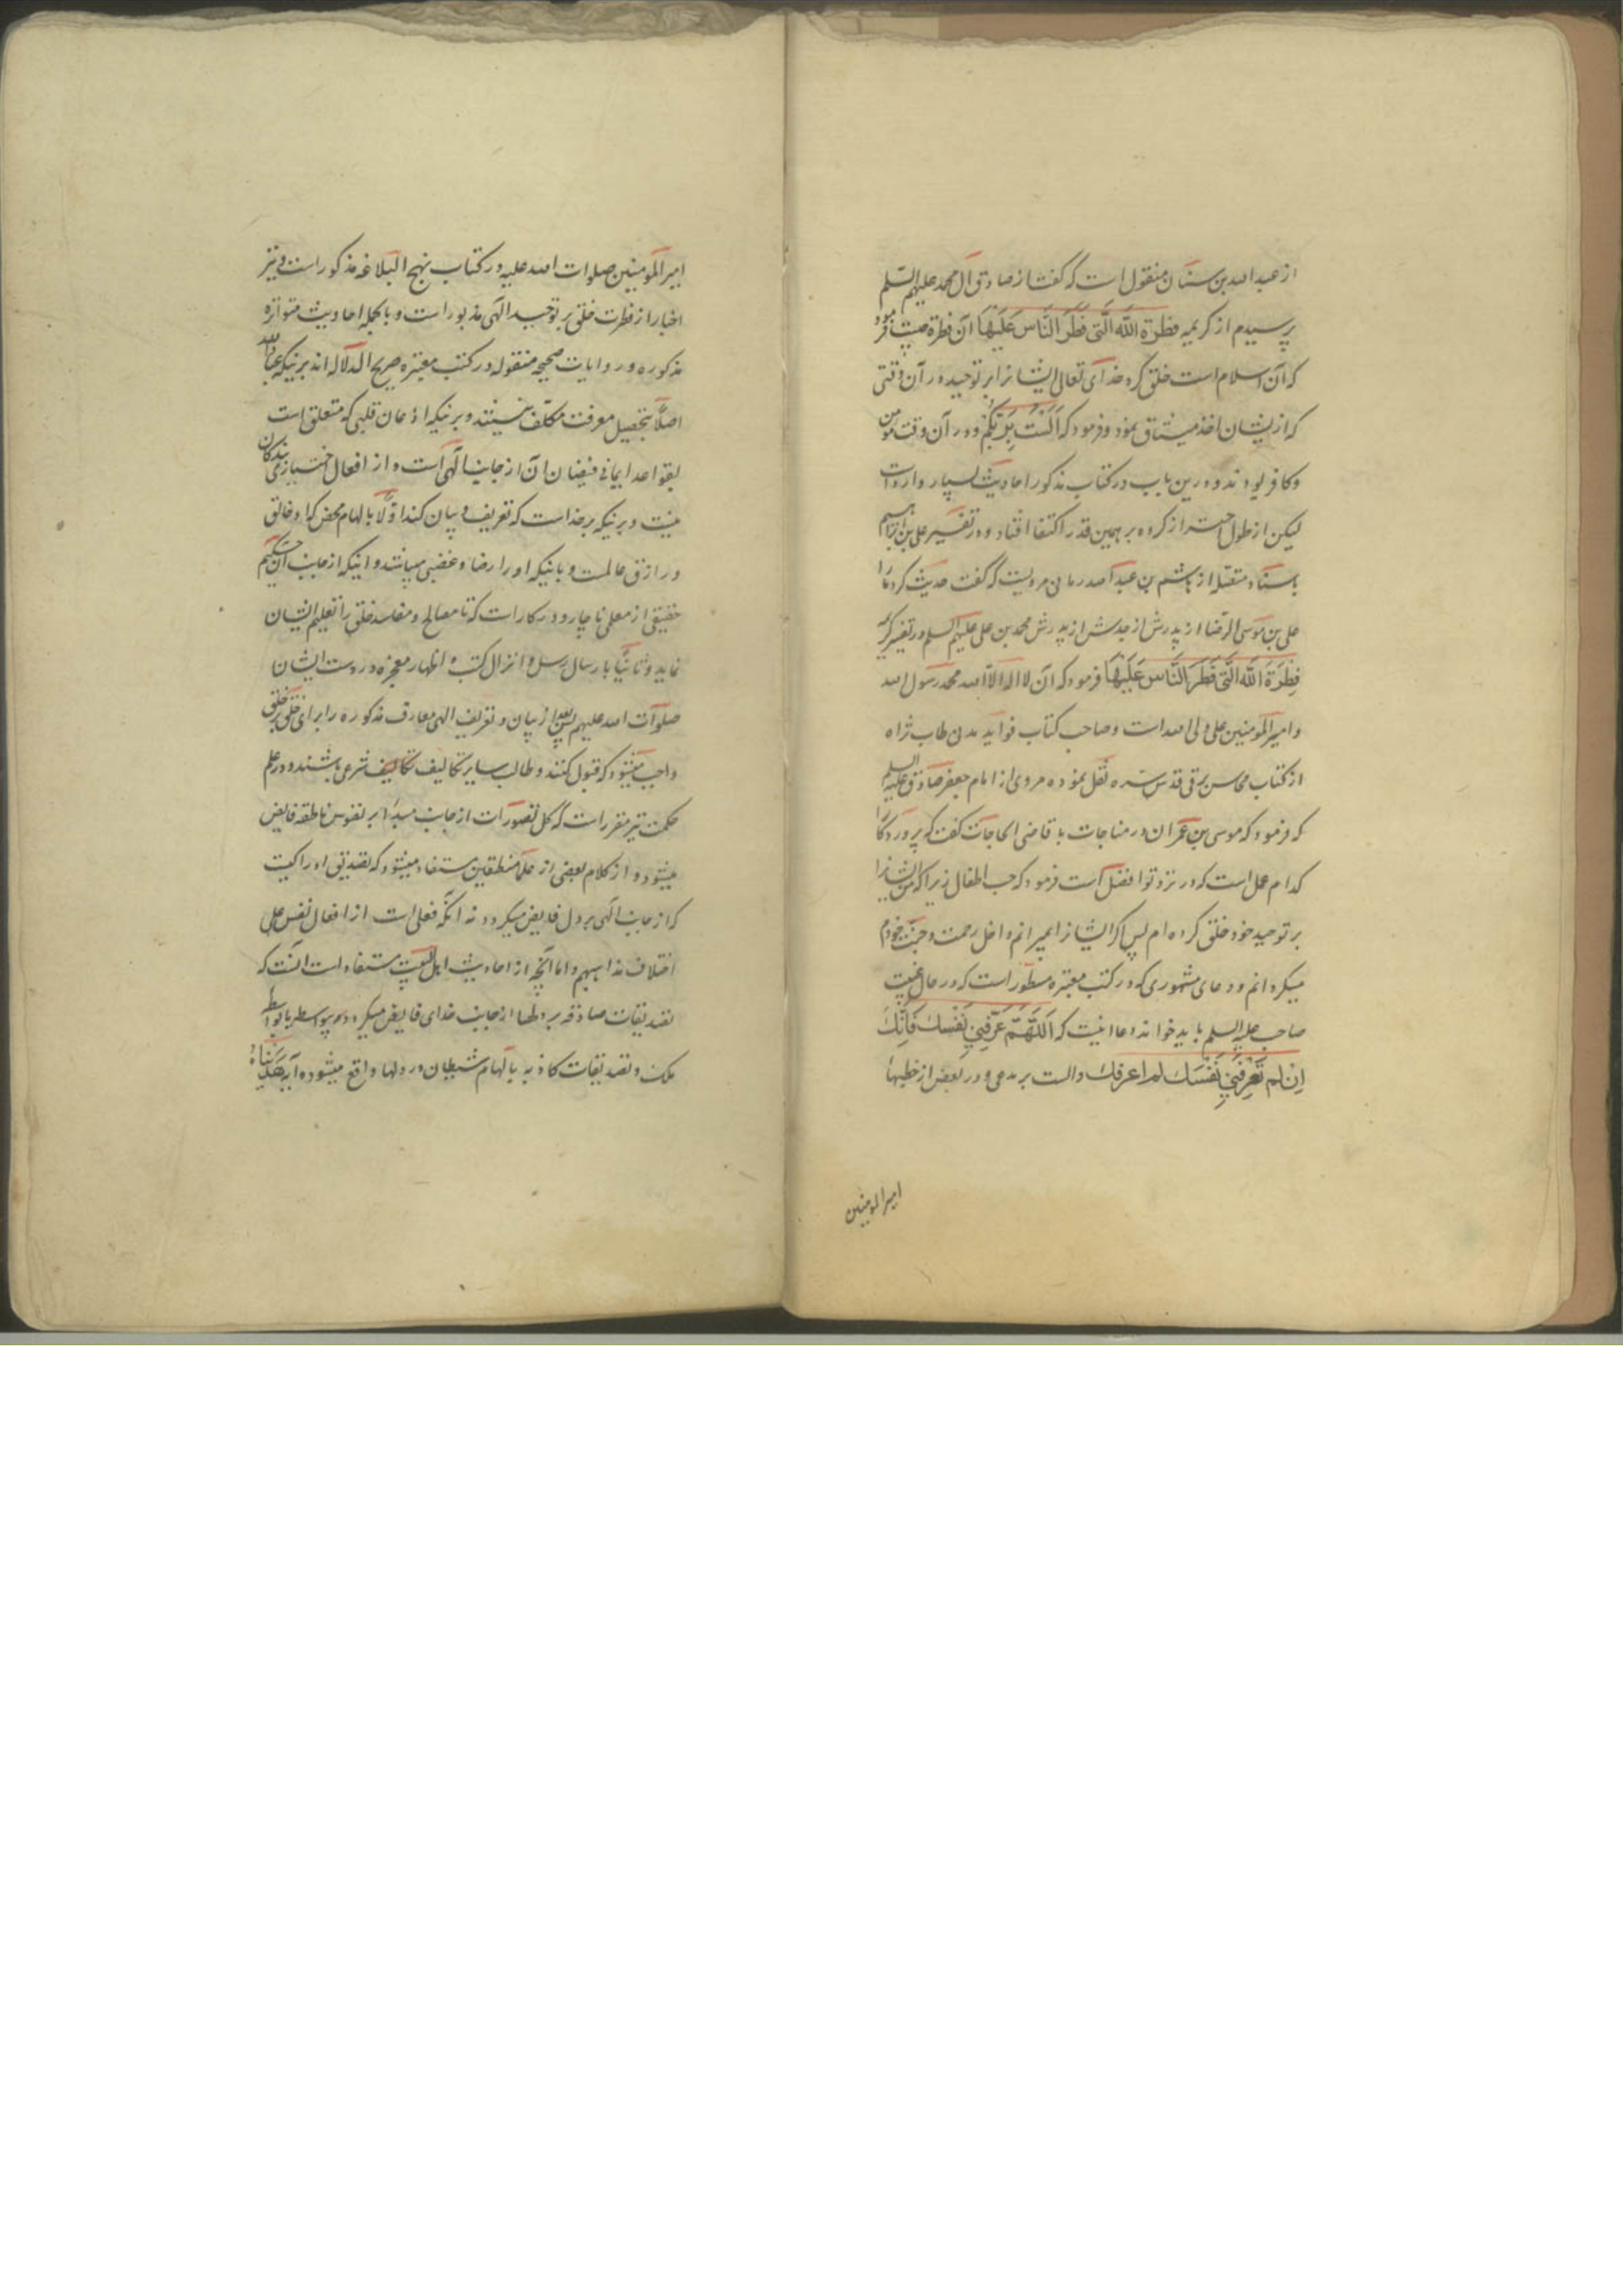 از عبد الله بن سنان منقول است که گفت از صادق آل محمد علیهم السلم
پرسیدم از کریمه فطرة الله الّتی فَطَرَ النّاسَ عَلَیْهَا آن فطرة چیست فرمود
که آن اسلام است خلق کرد خدای تعالی ایشانرا بر توحید در آن وقتی
که از یشان اخذ میثاق نمود و فرمود که اَلَسْتُ بِرَبِّکُمْ و در آن وقت مومن
و کافر بودند و درین باب در کتاب مذکور احادیث بسیار وارد است
لیکن از طول احتراز کرده بر همین قدر اکتفا افتاد و در تفسیر علی بن ابراهیم
باسناد متصل از هاشم بن عبد الله رمانی مرویست که گفت حدیث کرد ما را
علی بن موسی الرضا از پدرش از جدش از پدرش محمد بن علی علیهم السلم در تفسیر کریمه
فِطْرَةَ الله الَّتی فَطَرَ النَّاسَ عَلَیْهَا فرمود که آن لا اله الا الله محمد رسول الله
و امیر المؤمنین علی ولی الله است و صاحب کتاب فواید مدنی طاب ثراه
از کتاب محاسن برقی قدس سره نقل نموده مروی از امام جعفر صادق علیه السلم
که فرمود که موسی بن عمران در مناجات با قاضی الحاجات گفت که پروردگارا
کدام عمل است که در نزد تو افضل است فرمود که حب اطفال زیرا که من ایشانرا
بر توحید خود خلق کرده ام پس اگر ایشانرا بمیرانم داخل رحمت و جنت خودم
میگردانم و دعای مشهوری که در کتب معتبره مسطور است که در حال غیبت
صاحب علیه السلم باید خواند دعا اینست که اَللّهُمَّ عَرِّفْنِي نَفْسَكَ فَاِنَّكَ
اِنْ لم تُعَرِّفْنِي نَفْسَكَ لم اعرفك دالست بر مدعی و در بعض از خطبهای
امیر المومنین
امیر المؤمنین صلوات الله علیه در کتاب نهج البلاغه مذکور است و نیز
اخبار از فطرت خلق بر توحید الهی مذبور است و بالجمله احادیث متواتره
مذکوره و روایات صحیحه منقوله در کتب معتبره صریح الدلاله اند برینکه عباد الله
اصلاً بتحصیل معرفت مکلّف نیستند و برینکه اذعان قلبی که متعلق است
بقواعد ایمانی فیضان آن از جانب الهی است و از افعال اختیاری بندگان
نیست و برینکه بر خداست که تعریف و بیان کند اوّلاً بالهام محض که او خالق
و رازق عالمست و باینکه او را رضا و غضبی میباشد و اینکه از جانب آن حکیم
حقیقی از معلمی ناچار و در کار است که تا مصالح و مفاسد خلق را تعلیم ایشان
نماید و ثانیاً بارسال رسل و انزال کتب و اظهار معجزه در دست ایشان
صلوات الله علیهم پس بعد از بیان و تعریف الهی معارف مذکوره را برای خلق بر خلق
واجب میشود که قبول کنند و طالب سایر تکالیف تکالیف شرعی باشند و در علم
حکمت نیز مقرر است که کل تصورات از جانب مبدأ بر نفوس ناطقه فایض
میشود و از کلام بعضی از علما منطقیین مستفاد میشود که تصدیق ادراکیست
که از جانب الهی بر دل فایض میگردد نه آنکه فعلی است از افعال نفس علی
اختلاف مذاهبهم و اما آنچه از احادیث اهل البیت مستفاد است آنست که
تصدیقات صادقه بر دلها از جانب خدای فایض میگردد بیواسطه یا بواسطه
ملک و تصدیقات کاذبه بالهام شیطان در دلها واقع میشود و آیه هدیناه